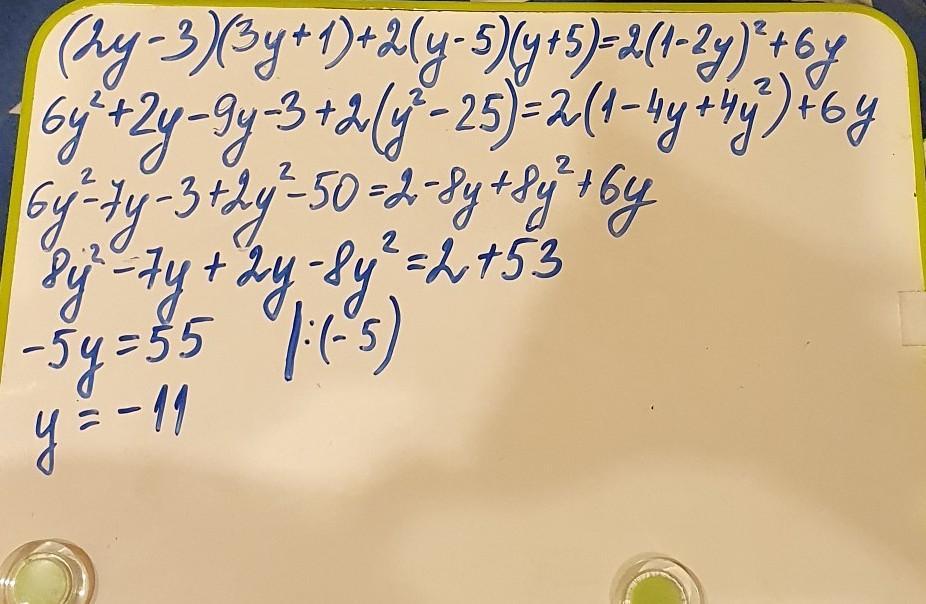 (2y-3)(3y+1)+2(y-5)(y+5)=2(1-2y)²+6y
6y²+2y-9y-3+2(y²-25)=2(1-4y+4y²)+6y
6y²-7y-3+2y²-50=2-8y+8y²+6y
8y²-7y+2y-8y²=2+53
-5y=55 |:(-5)
y=-11